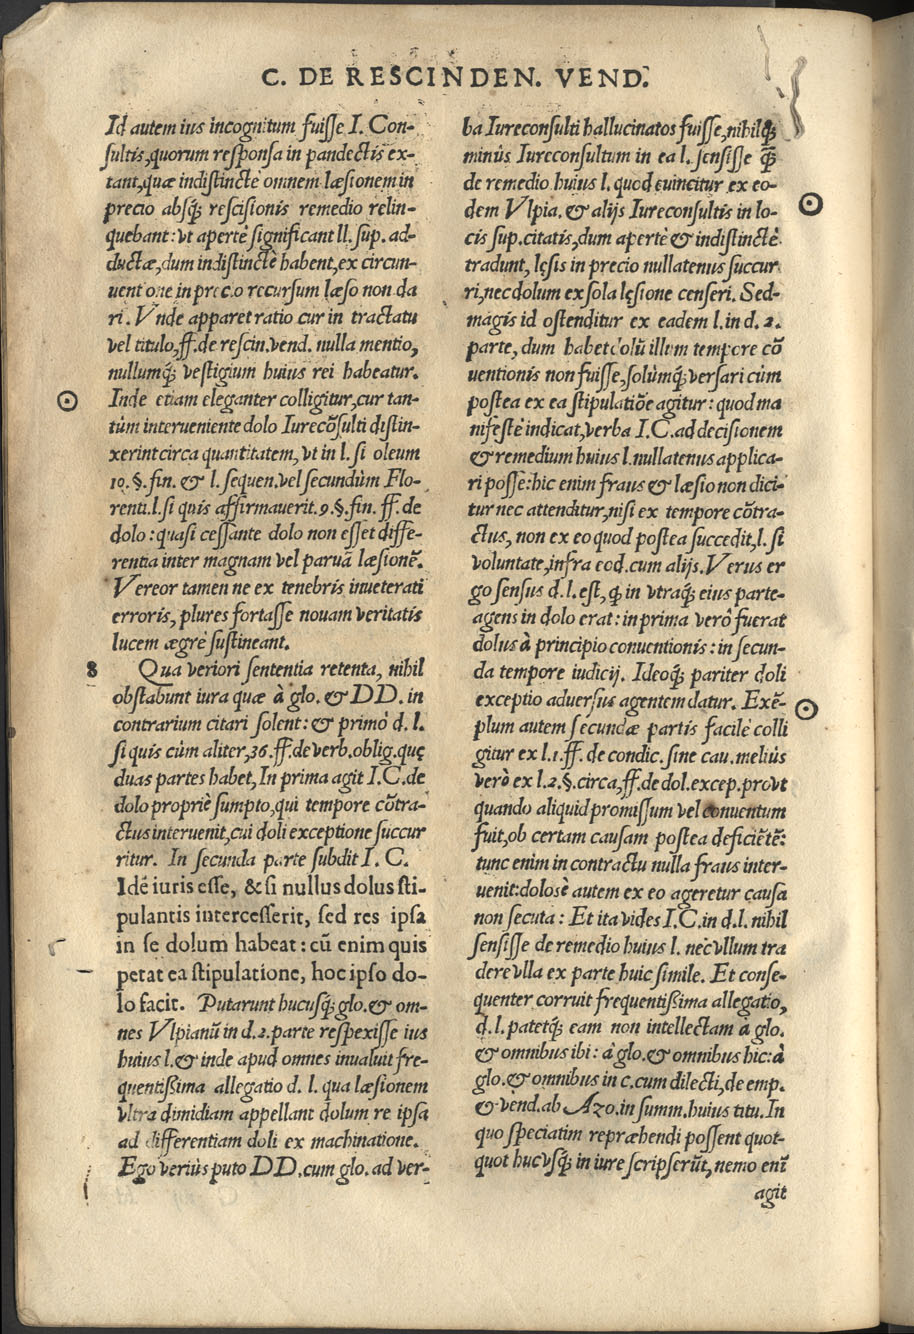 C. DE RESCINDEN. VEND.
Id autem ius incognitum fuiſſe I. Con-
ſultis, quorum reſponſa in pandectis ex-
tant, quæ indiſtinctè omnem læſionem in
precio abſq́; reſciſionis remedio relin-
quebant: vt apertè ſignificant ll. ſup. ad-
ductæ, dum indiſtinctè habent, ex circun-
uentione in precio recurſum læſo non da
ri. Vnde apparet ratio cur in tractatu
vel titulo, ff. de reſcin. vend. nulla mentio,
nullumq́; veſtigium huius rei habeatur.
Inde etiam eleganter colligitur, cur tan-
tùm interueniente dolo Iurecõſulti diſtin-
xerint circa quantitatem, vt in l. ſi oleum
10. §. fin. & l. ſequen. vel ſecundùm Flo-
renti. l. ſi quis affirmauerit. 9. §. fin. ff. de
dolo: quaſi ceſſante dolo non eſſet diffe-
rentia inter magnam vel paruã læſionẽ.
Vereor tamen ne ex tenebris inueterati
erroris, plures fortaſſe nouam veritatis
lucem ægrè ſuſtineant.
8 Qua veriori ſententia retenta, nihil
obſtabunt iura quæ à glo. & DD. in
contrarium citari ſolent: & primò d. l.
ſi quis cùm aliter, 36. ff. de verb. oblig. quę
duas partes habet, In prima agit I. C. de
dolo propriè ſumpto, qui tempore cõtra-
ctus interuenit, cui doli exceptione ſuccur
ritur. In ſecunda parte ſubdit I. C.
Idẽ iuris eſſe, & ſi nullus dolus ſti-
pulantis interceſſerit, ſed res ipſa
in ſe dolum habeat: cũ enim quis
petat ea ſtipulatione, hoc ipſo do-
lo facit. Putarunt hucuſq́; glo. & om-
nes Vlpianũ in d. 2. parte reſpexiſſe ius
huius l. & inde apud omnes inualuit fre-
quentißima allegatio d. l. qua læſionem
vltra dimidiam appellant dolum re ipſa
ad differentiam doli ex machinatione.
Ego veriùs puto DD. cum glo. ad ver-
ba Iureconſulti hallucinatos fuiſſe, nihilq́;
minùs Iureconſultum in ea l. ſenſiſſe q̃̃
de remedio huius l. quod euincitur ex eo-
dem Vlpia. & alijs Iureconſultis in lo-
cis ſup. citatis, dum apertè & indiſtinctè
tradunt, lęſis in precio nullatenus ſuccur
ri, nec dolum ex ſola lęſione cenſeri. Sed
magis id oſtenditur ex eadem l. in d. 2.
parte, dum habet dolũ illum tempore cõ
uentionis non fuiſſe, ſolùmq́; verſari cùm
poſtea ex ea ſtipulatiõe agitur: quod ma
nifeſtè indicat, verba I. C. ad deciſionem
& remedium huius l. nullatenus applica-
ri poſſe: hic enim fraus & læſio non dici-
tur nec attenditur, niſi ex tempore cõtra-
ctus, non ex eo quod poſtea ſuccedit, l. ſi
voluntate, infra eod. cum alijs. Verus er
go ſenſus d. l. eſt, ꝙ in vtraq́; eius parte
agens in dolo erat: in prima verò fuerat
dolus à principio conuentionis: in ſecun-
da tempore iudicij. Ideoq́; pariter doli
exceptio aduerſus agentem datur. Exẽ-
plum autem ſecundæ partis facilè colli
gitur ex l. 1. ff. de condic. ſine cau. meliùs
verò ex l. 2. §. circa, ff. de dol. excep. prout
quando aliquid promiſſum vel conuentum
fuit, ob certam cauſam poſtea deficiẽtẽ:
tunc enim in contractu nulla fraus inter-
uenit: doloſè autem ex eo ageretur cauſa
non ſecuta: Et ita vides I. C. in d. l. nihil
ſenſiſſe de remedio huius l. nec vllum tra
dere vlla ex parte huic ſimile. Et conſe-
quenter corruit frequentißima allegatio,
d. l. patetq́; eam non intellectam à glo.
& omnibus ibi: à glo. & omnibus hic: à
glo. & omnibus in c. cum dilecti, de emp.
& vend. ab Azo. in ſumm. huius titu. In
quo ſpeciatim repræhendi poſſent quot-
quot hucvſq́; in iure ſcripſerũt, nemo enĩ
agit